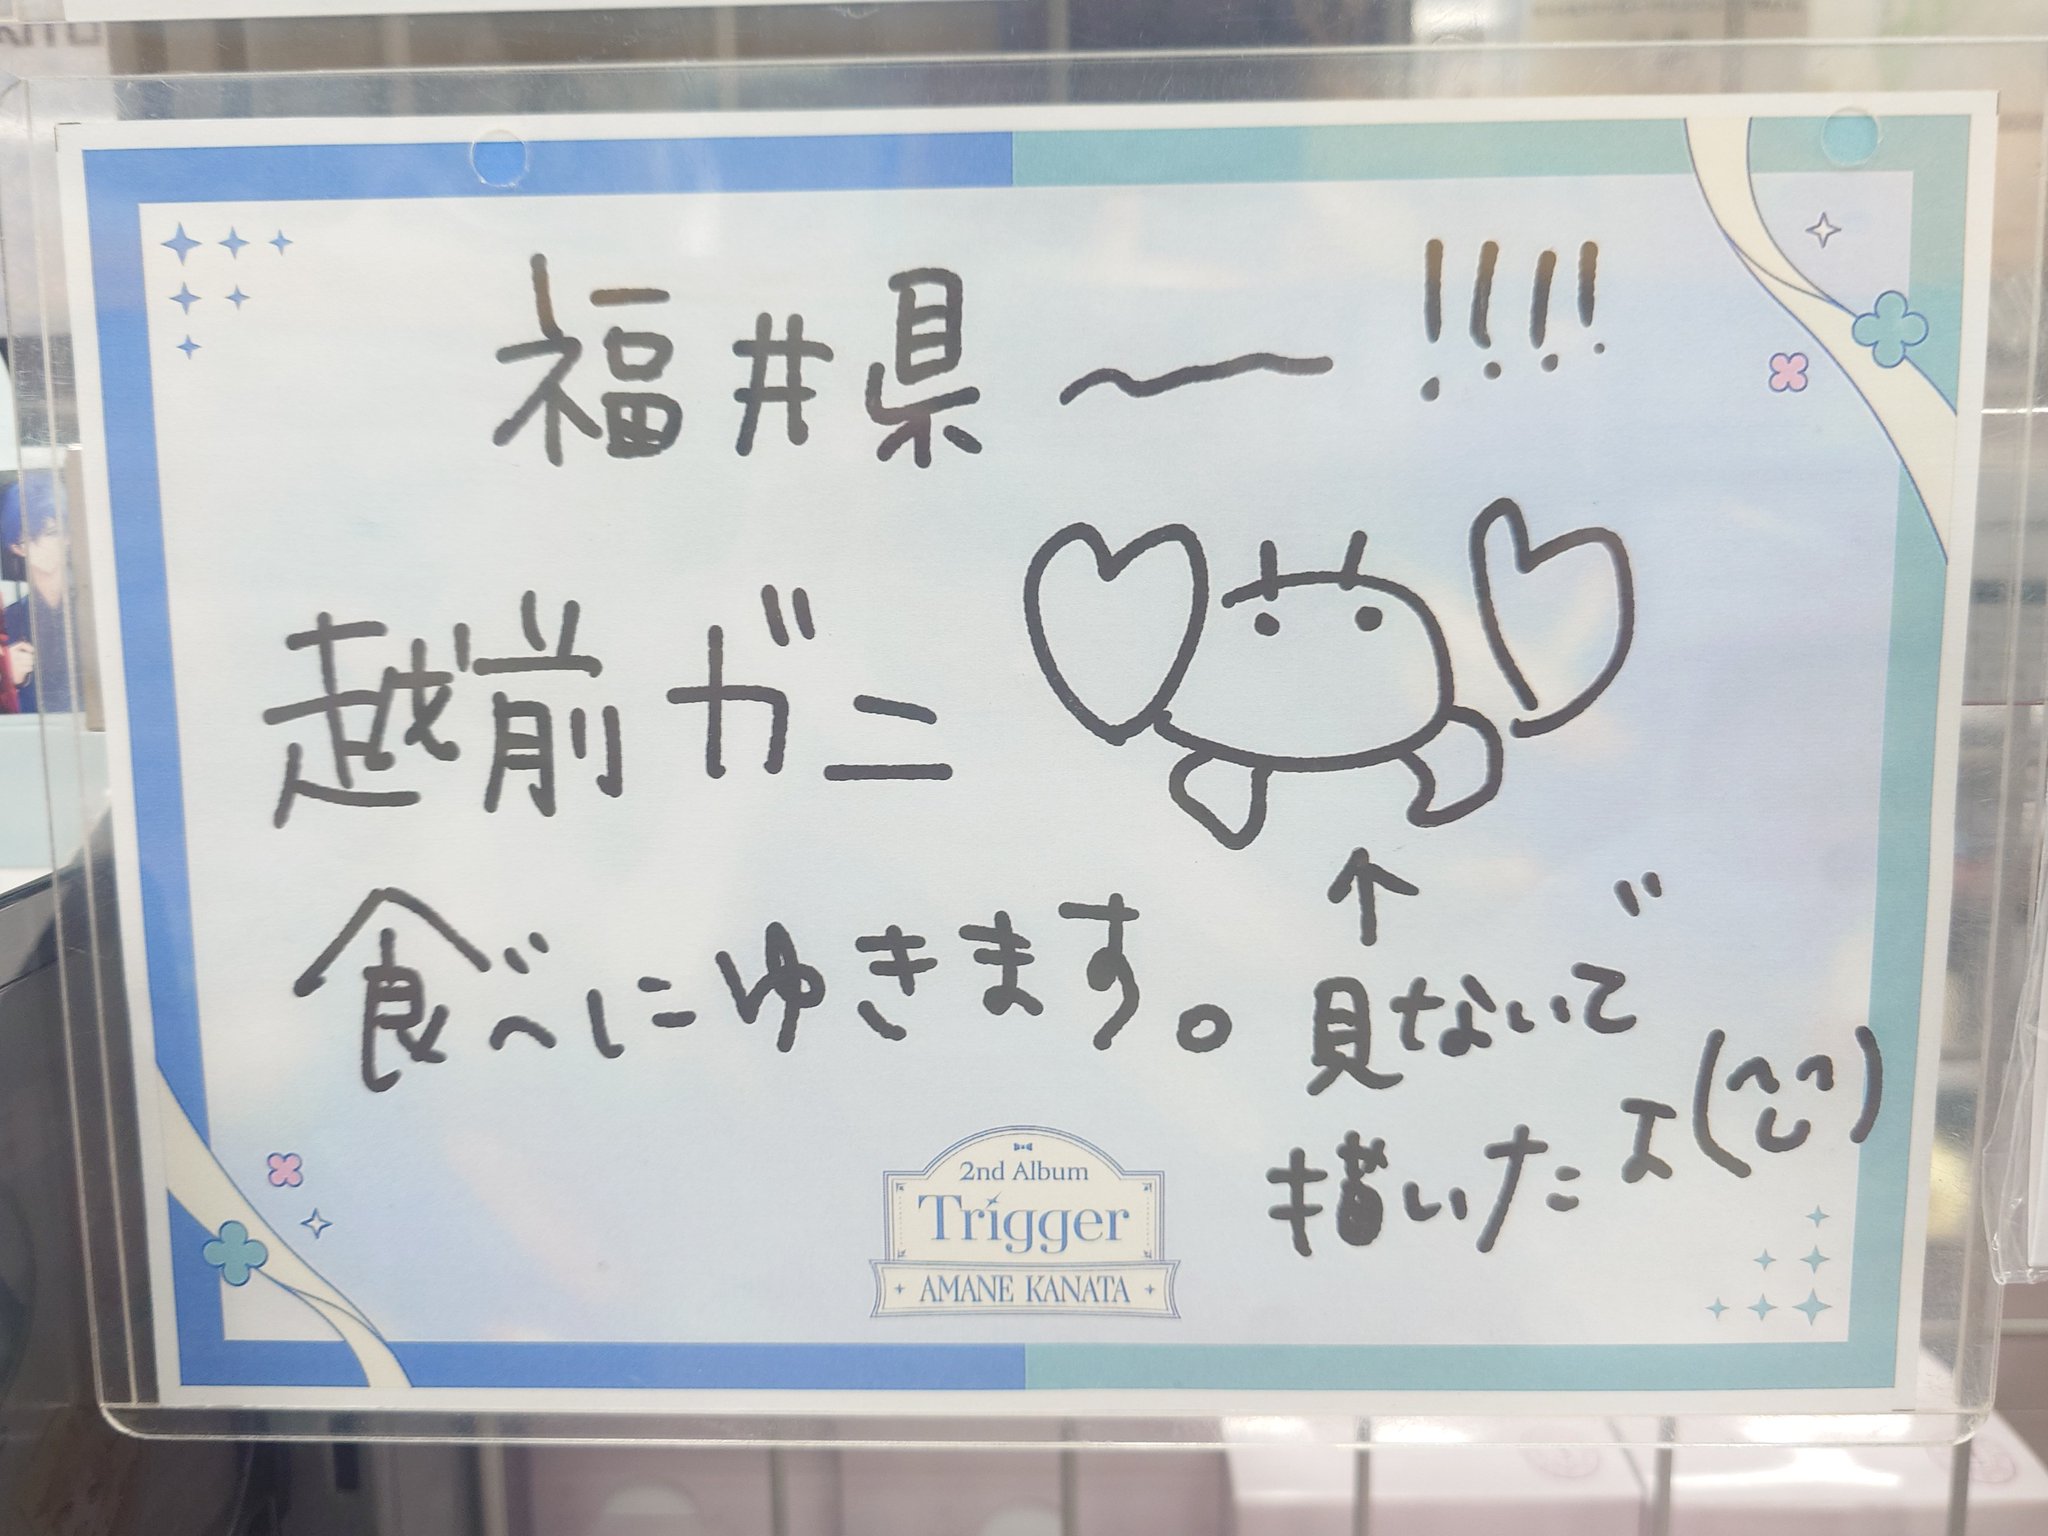 福井県〜!!!!
越前ガニ
食べにゆきます。
↑
見ないで
描いたよ(^^)
2nd Album
Trigger
AMANE KANATA